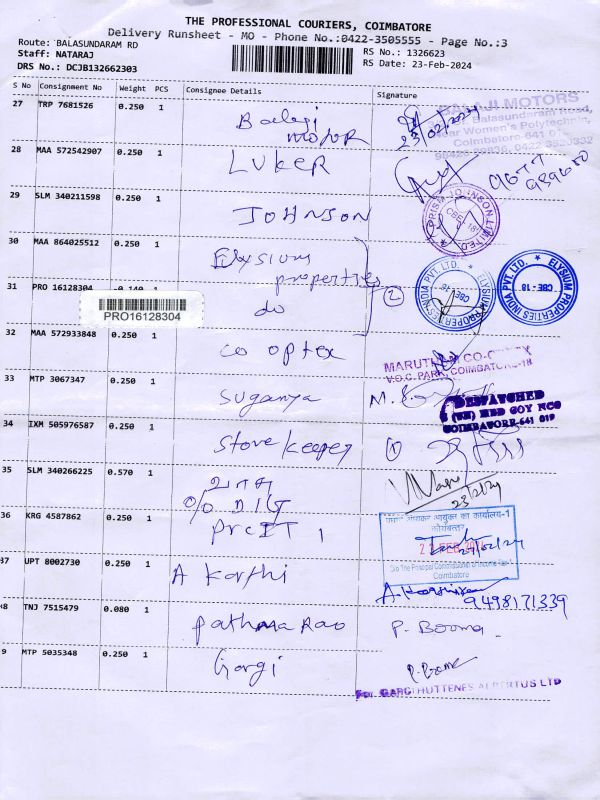 THE PROFESSIONAL COURIERS, COIMBATORE
Delivery Runsheet - MO - Phone No.:0422-3505555 - Page No.:3
Route: BALASUNDARAM RD
Staff: NATARAJ
RS No.: 1326623
DRS No.: DCJB132662303
RS Date: 23-Feb-2024
S No Consignment No Weight PCS Consignee Details Signature
27 TRP 7681526 0.250 1 Balaji
motor
BALAJI MOTORS
Balasundaram road,
Near Women's Polytechnic,
Coimbatore
23/02/2024
28 MAA 572542907 0.250 1 LUKER
29 SLM 340211598 0.250 1 JOHNSON
30 MAA 864025512 0.250 1 Elysium
properties
ELYSIUM PROPERTIES INDIA PVT. LTD.
CBE - 18
ELYSIUM PROPERTIES INDIA PVT. LTD.
CBE - 18
31 PRO 16128304 0.140 1 do
2
PRO16128304
32 MAA 572933848 0.250 1 co optex
MARUTHAM CO-OPTEX
V.O.C. PARK, COIMBATORE-18
33 MTP 3067347 0.250 1 Suganya
DESPATCHED
COIMBATORE-641 019
34 IXM 505976587 0.250 1 Store keeper
1
35 SLM 340266225 0.570 1
O/o DIG
23/2/24
36 KRG 4587862 0.250 1 PrCIT 1
आयकर आयुक्त का कार्यालय-1
कोयंबत्तूर
O/o The Principal Commissioner of Income Tax-1
Coimbatore
37 UPT 8002730 0.250 1 A Karthi
9498171339
38 TNJ 7515479 0.080 1 Pathma Rao
P. Booma
39 MTP 5035348 0.250 1 Gargi
For GARGI HUTTENES ALBERTUS LTD